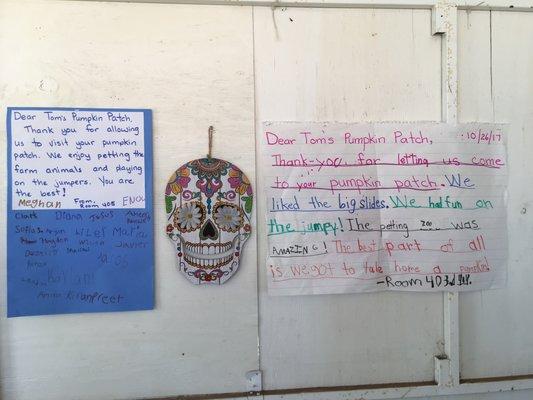 Dear Tom's Pumpkin Patch,
Thank you for allowing
us to visit your pumpkin
patch. We enjoy petting the
farm animals and playing
on the jumpers. You are
the best!
From,
Room 405
Meghan
Diana Jesus
Sofia Arjun
Maria
Javier
Kiranpreet
Dear Tom's Pumpkin Patch, 10/26/17
Thank-you for letting us come
to your pumpkin patch. We
liked the big slides. We had fun on
the jumpy! The petting zoo was
AMAZING! The best part of all
is we got to take home a pumpkin!
-Room 403